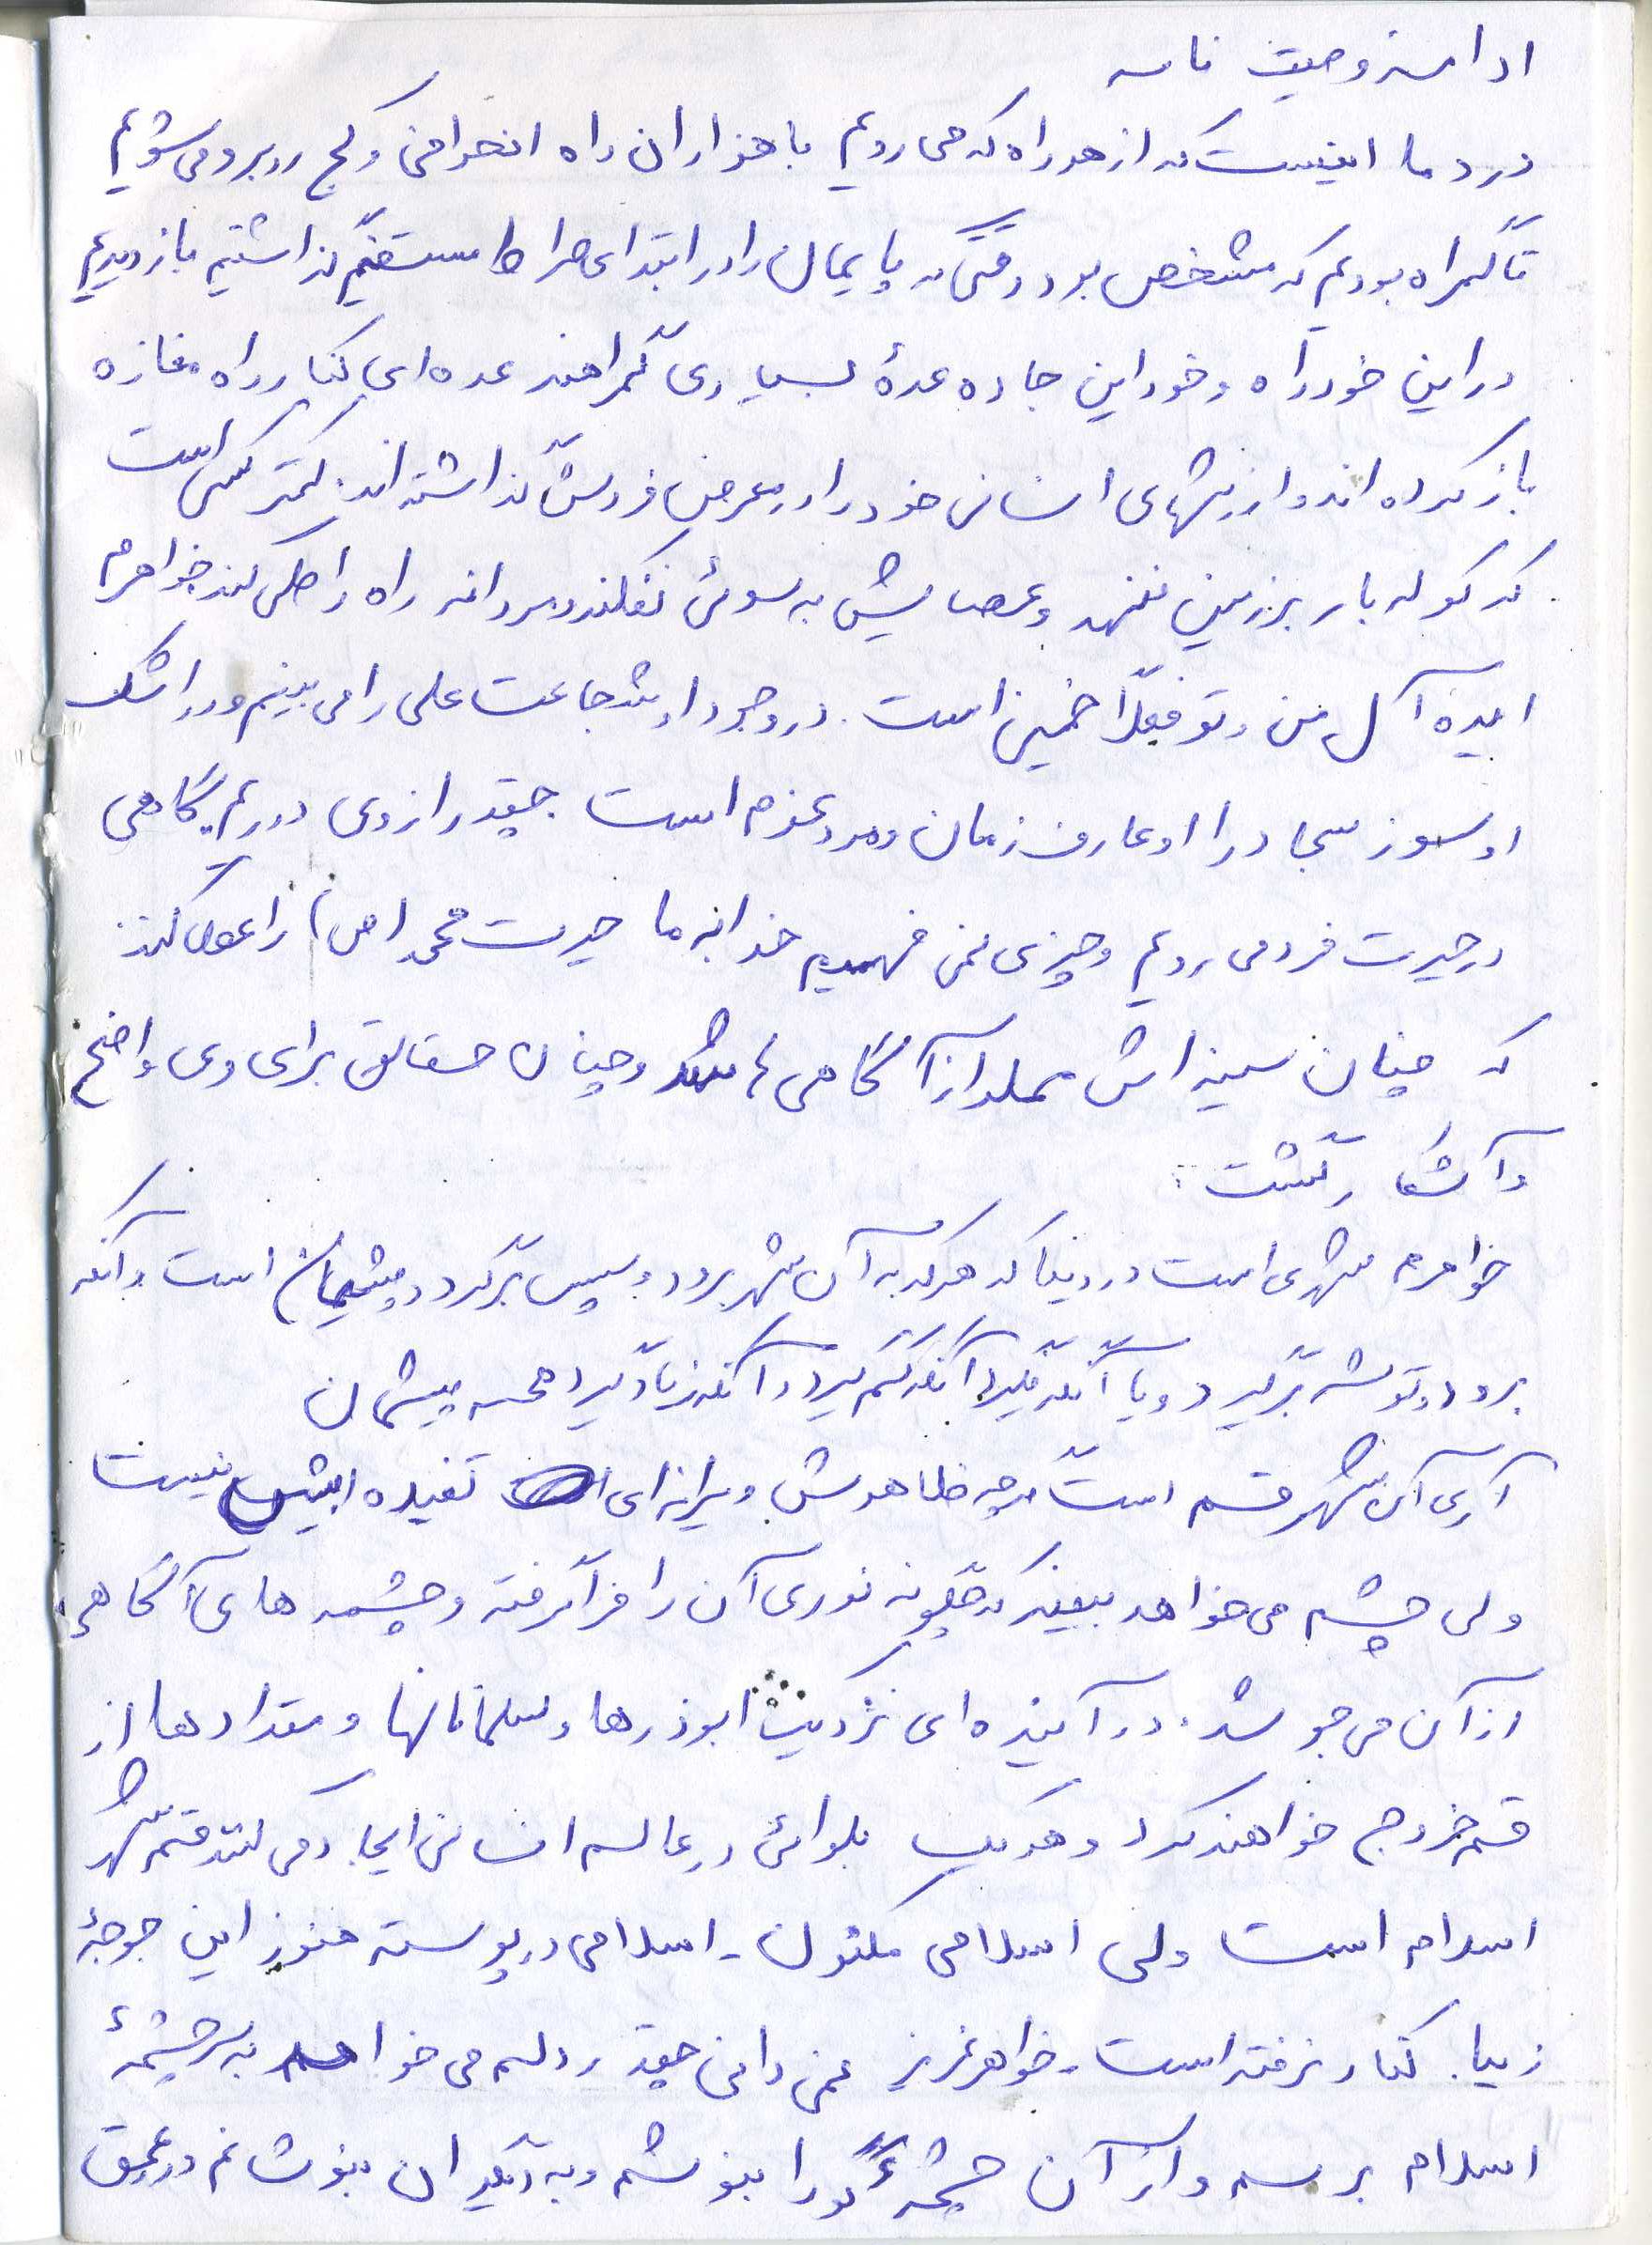 ادامه وصیت نامه
درد ما اینست که از هر راه که می رویم با هزاران راه انحرافی و کج روبرو می شویم
تا گمراه بودیم که مشخص بود وقتی که پایمان را در ابتدای صراط مستقیم گذاشتیم باز دیدیم
در این خود راه و خود این جاده عدهٔ بسیاری گمراهند عده ای کنار راه مغازه
باز کرده اند و ارزشهای انسانی خود را در معرض فروش گذاشته اند. کمتر کسی است
که کوله بار بر زمین ننهد و عصایش به سوئی نفکند و مردانه راه را طی کند خواهرم
ایده آل من و تو فعلاً خمینی است. در وجود او شجاعت علی را می بینم و در اشک
او سوز سجاد را او عارف زمان و مرد عزم است چقدر از وی دوریم گاهی
در حیرت فرو می رویم و چیزی نمی فهمیم خدا به ما حیرت محمد (ص) را عطا کند
که چنان سینه اش مملو از آگاهی ها شد و چنان حقایق برای وی واضح
و آشکار گشت
خواهرم شهری است در دنیا که هر که به آن شهر برود و سپس برگردد پشیمان است و آنکه
برود و توشه برگیرد و یا آنکه نگیرد آنکه کم گیرد و آنکه زیاد گیرد همه پشیمان
آری آن شهر قم است گرچه ظاهرش ویرانه ای تفیده ای بیش نیست
ولی چشم می خواهد ببیند که چگونه نوری آن را فرا گرفته و چشمه های آگاهی
از آن می جوشد. در آینده ای نزدیک ابوذرها و سلمانها و مقدادها از
قم خروج خواهند کرد و هر یک بلوائی در عالم انسانی ایجاد می کنند قم شهر
اسلام است ولی اسلامی مکنون - اسلامی در پوسته هنوز این جوجهٔ
زیبا کنار نرفته است - خواهر عزیز نمی دانی چقدر دلم می خواهد به سرچشمهٔ
اسلام برسم و از آن چشمهٔ گورا بنوشم و به دیگران بنوشانم در عمق